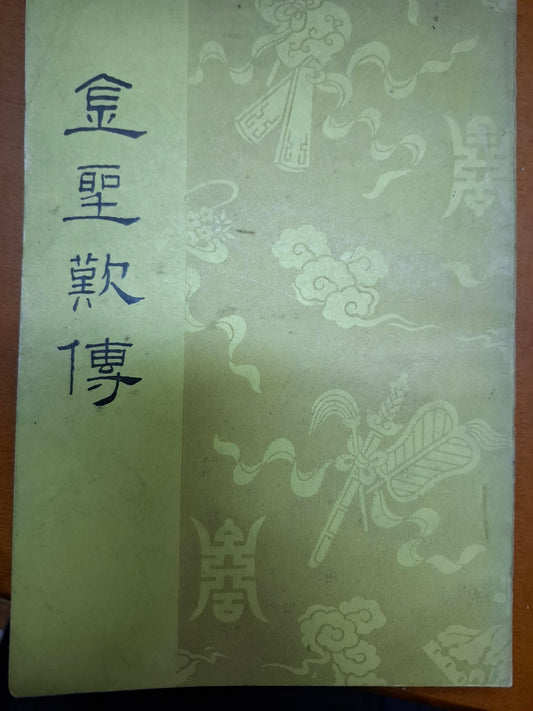 金聖歎傳